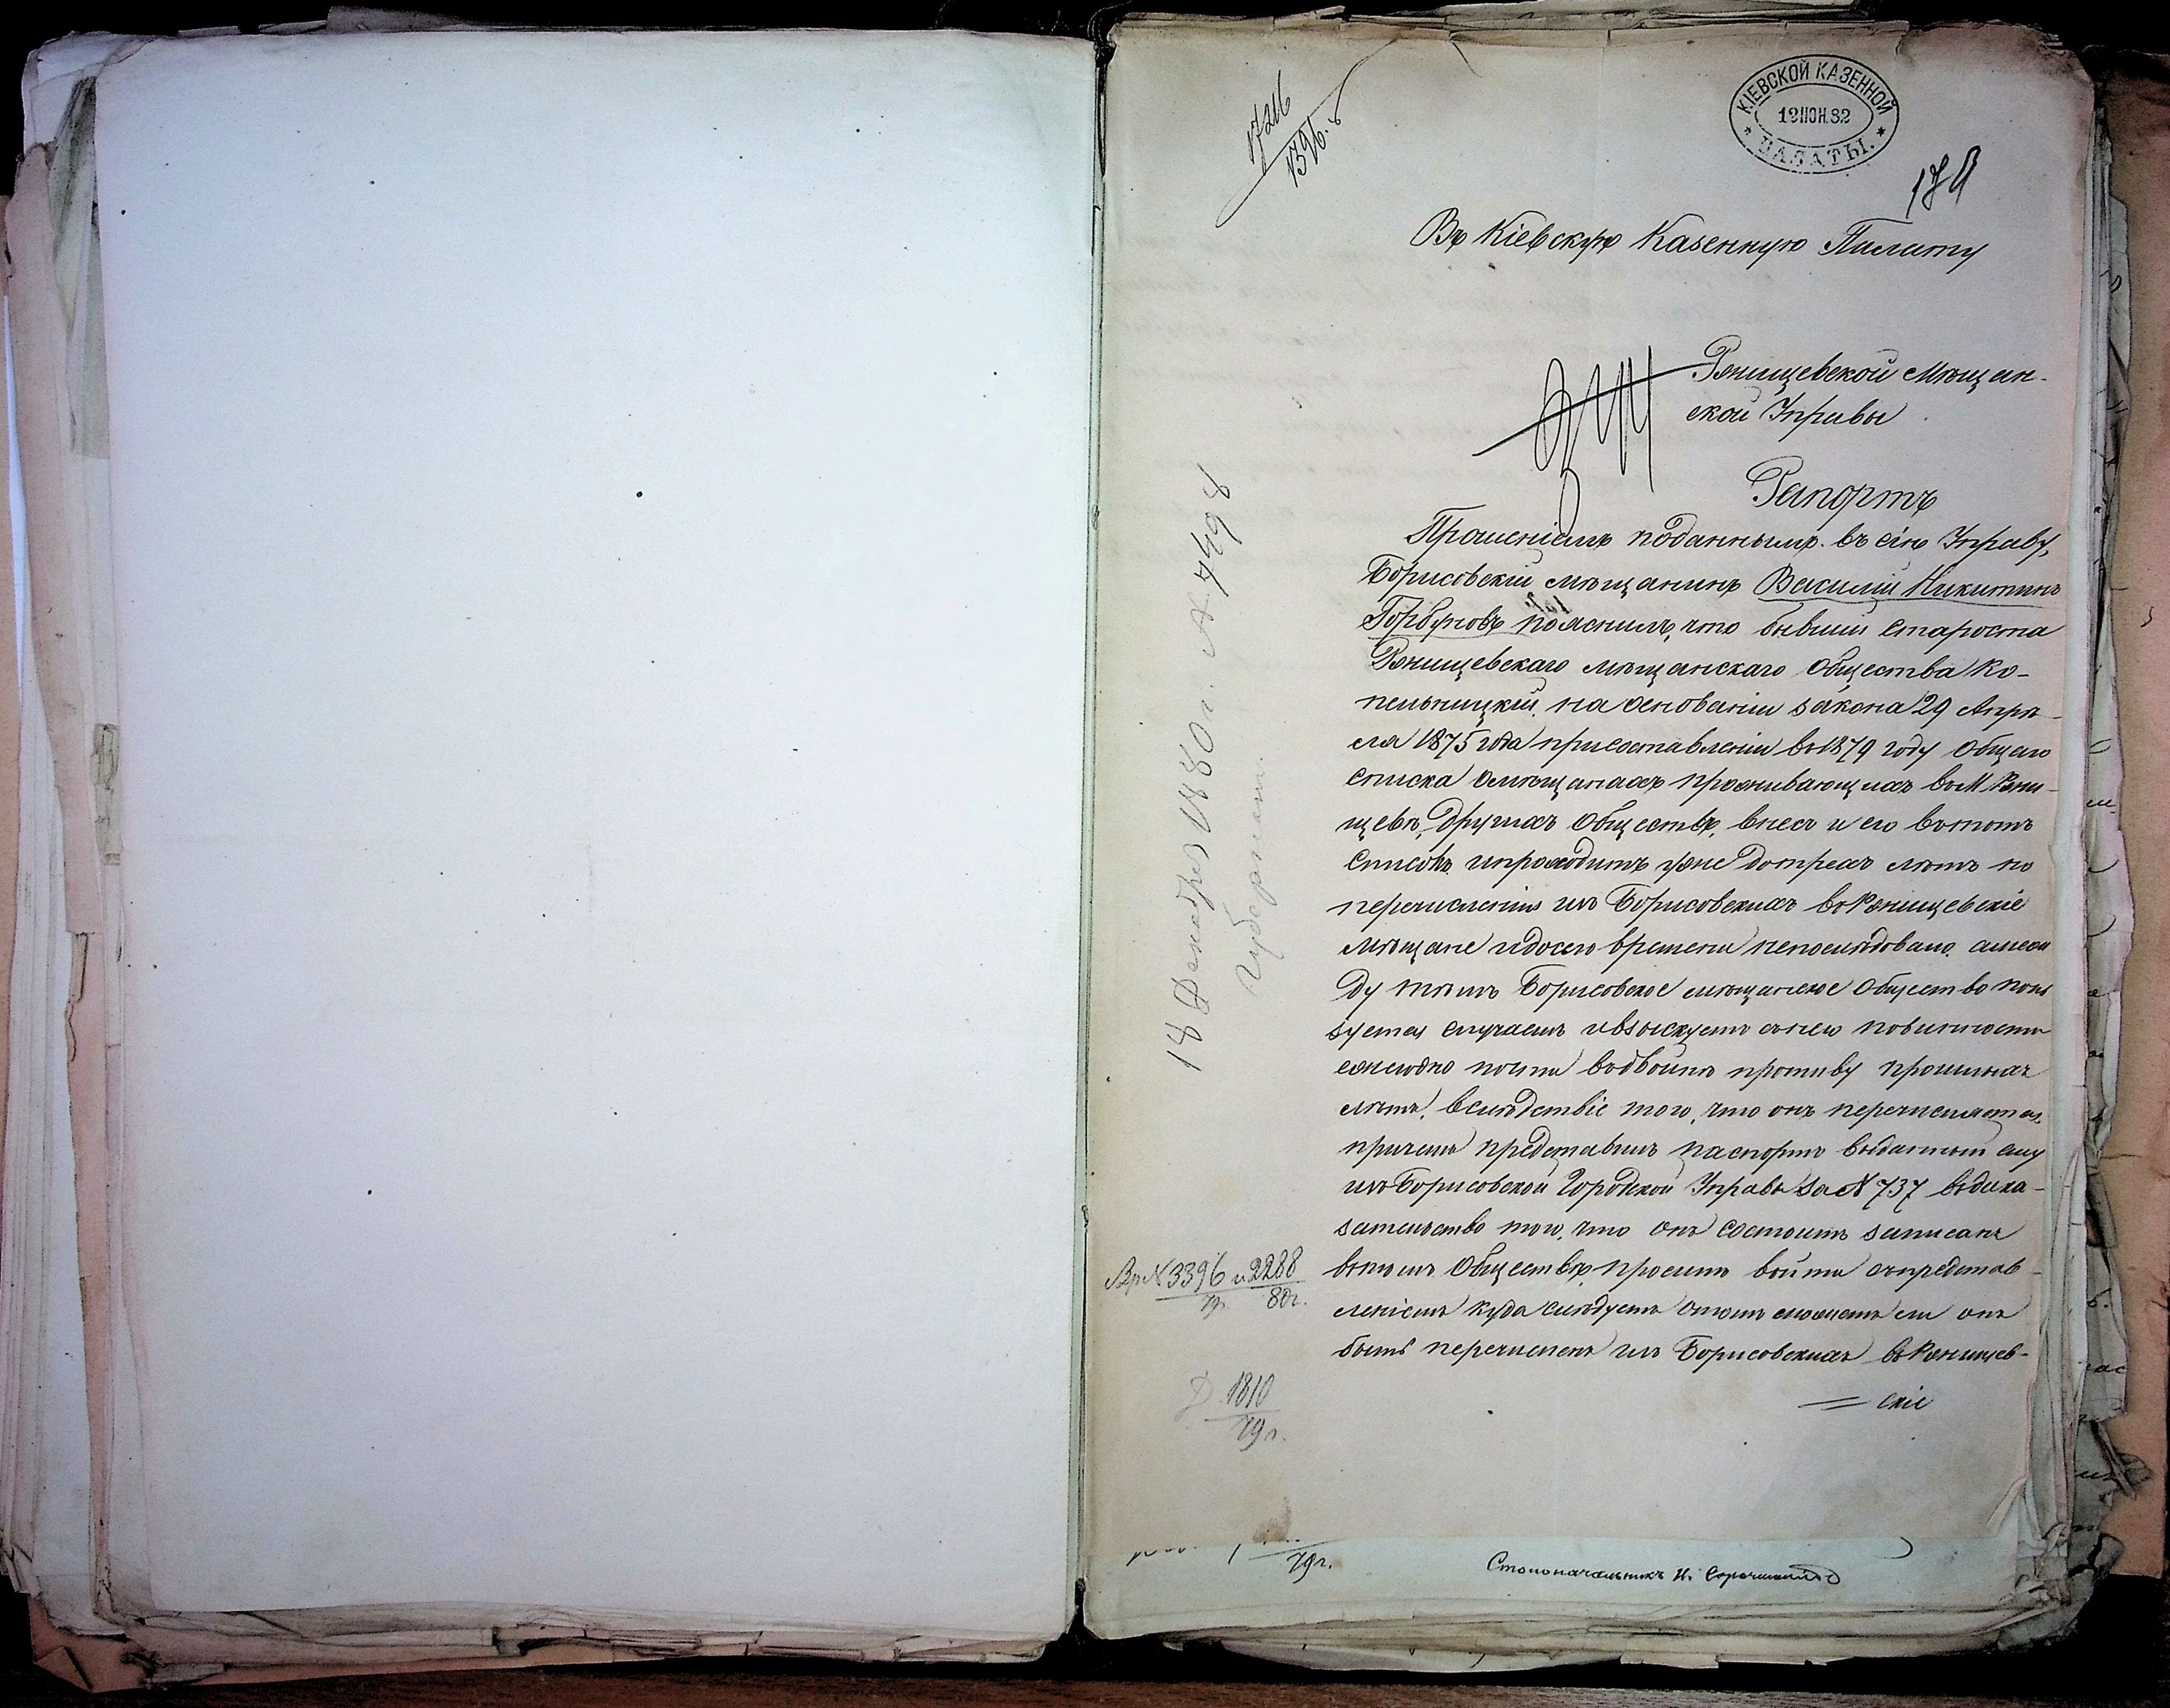 КІЕВСКОЙ КАЗЕННОЙ
12 ІЮН. 82
ПАЛАТЫ.
17216
1396.
Въ Кіевскую Казенную Палату
Ржищевской Мѣщан-
ской Управы
Рапортъ
Прошеніемъ поданнымъ въ сію Управу,
Борисовскій мѣщанинъ Василій Никитинъ
Горбуновъ пояснилъ, что бывшій староста
Ржищевскаго мѣщанскаго Общества Ко-
пельницкій, на основаніи закона 29 Апрѣ-
ля 1875 года при составленіи въ 1879 году общаго
списка о мѣщанахъ проживающихъ въ М. Ржи-
щевѣ, другихъ Обществъ, внесъ и его въ тотъ
списокъ и проходитъ уже до трехъ лѣтъ но
перечисленія изъ Борисовскихъ въ Ржищевскіе
мѣщане и до сего времени непослѣдовало, а меж
ду тѣмъ Борисовское мѣщанское Общество поль
зуется случаемъ и взыскуетъ съ него повинности
ежегодно почти вдвойнѣ противу прошлыхъ
лѣтъ, вслѣдствіе того, что онъ перечисляется,
причемъ представилъ паспортъ выданный ему
изъ Борисовской Городской Управы за N 737 въ дока-
зательство того, что онъ состоитъ записанъ
въ томъ Обществѣ, проситъ войти съ представ-
леніемъ куда слѣдуетъ о томъ можетъ ли онъ
быть перечисленъ изъ Борисовскихъ въ Ржищев-
скіе
18 Декабря 1880 г. N 7498
Губернат.
Вр N 3396 и 2288
80г.
Д. 1810
79 г.
79 г.
Столоначальникъ И.